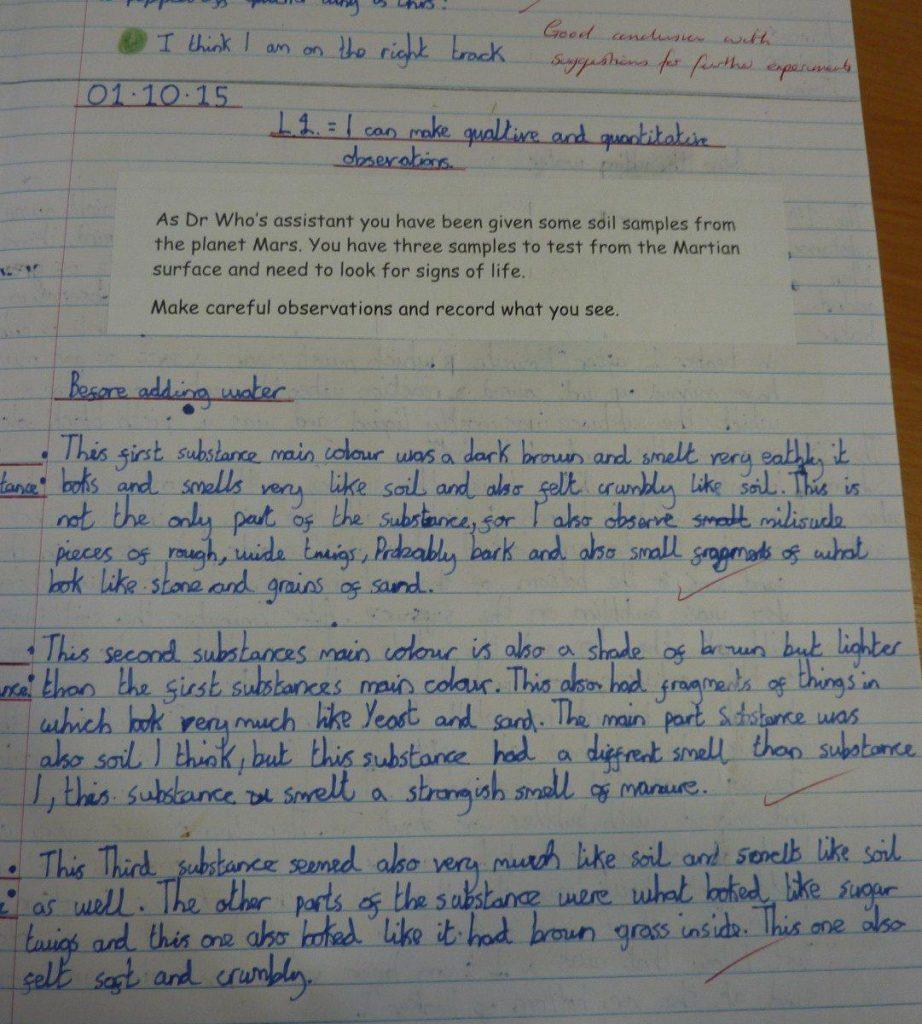 like this!
I think I am on the right track
Good conclusion with
suggestions for further experiments
01.10.15
L.I. = I can make qualtive and quantitative
obserations.
As Dr Who's assistant you have been given some soil samples from
the planet Mars. You have three samples to test from the Martian
surface and need to look for signs of life.
Make careful observations and record what you see.
Before adding water
• This first substance main colour was a dark brown and smelt very eathly it
tance: looks and smells very like soil and also felt crumbly like soil. This is
not the only part of the substance, for I also observe small miliscule
pieces of rough, wide twigs, Probably bark and also small fragments of what
look like stone and grains of sand.
• This second substances main colour is also a shade of brown but lighter
nce: than the first substances main colour. This also had fragments of things in
which look very much like Yeast and sand. The main part Substance was
also soil I think, but this substance had a diffrent smell than substance
1, this substance smelt a strongish smell of manure.
• This Third substance seemed also very much like soil and smelt like soil
e: as well. The other parts of the substance were what looked like sugar
twigs and this one also looked like it had brown grass inside. This one also
felt soft and crumbly.